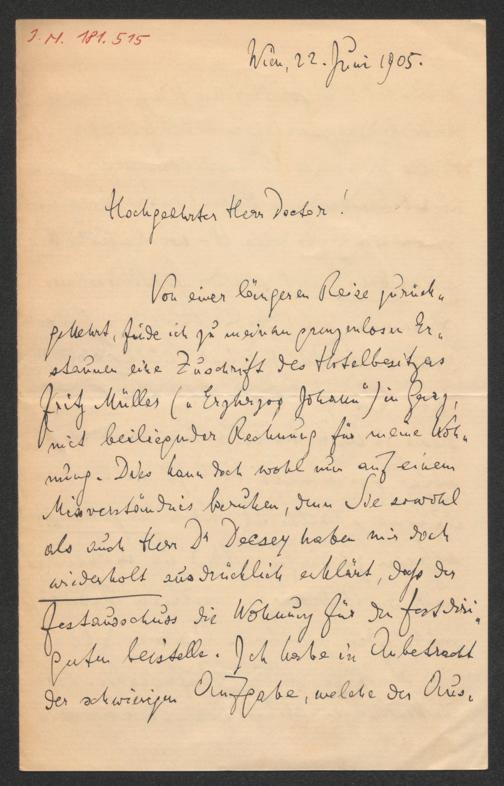 I.N. 181.515
Wien, 22. Juni 1905.
Hochgeehrter Herr Doctor!
Von einer längeren Reise zurück-
gekehrt, finde ich zu meinem grenzenlosen Er-
staunen eine Zuschrift des Hotelbesitzers
Fritz Müller („Erzherzog Johann") in Graz,
mit beiliegender Rechnung für meine Woh-
nung. Dies kann doch wohl nur auf einem
Missverständnis beruhen, denn Sie sowohl
als auch Herr Dr Decsey haben mir doch
wiederholt ausdrücklich erklärt, dass der
Festausschuss die Wohnung für den Festdiri-
genten beistelle. Ich habe in Anbetracht
der schwierigen Aufgabe, welche der Aus-